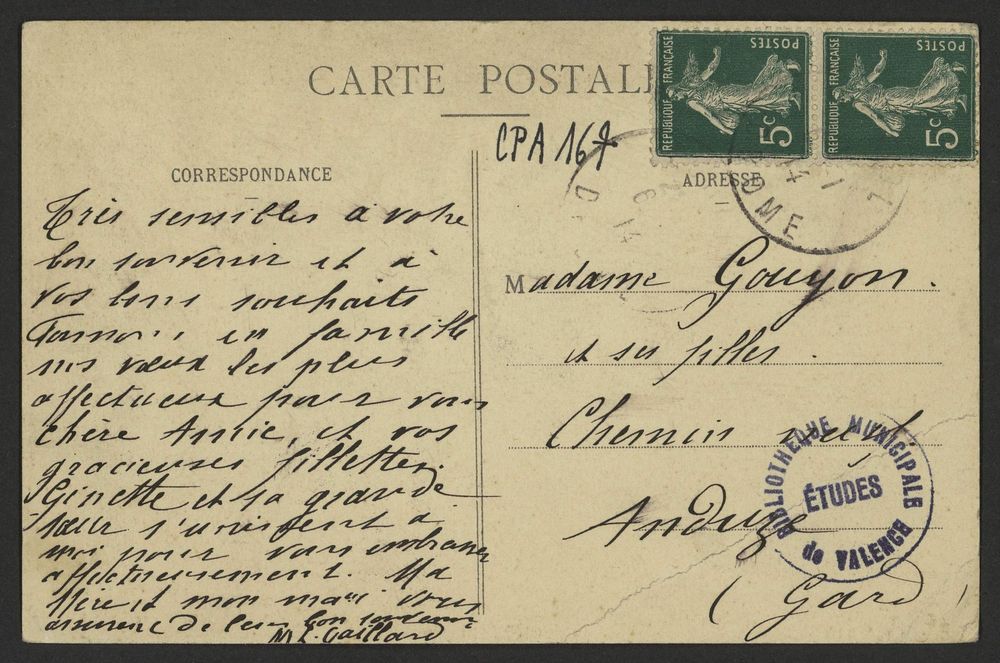 CARTE POSTAL
RÉPUBLIQUE FRANÇAISE
POSTES
5c
RÉPUBLIQUE FRANÇAISE
POSTES
5c
CPA 167
CORRESPONDANCE
Très sensibles à votre
bon souvenir et à
vos bons souhaits
en famille
nos vœux les plus
affectueux pour vous
chère Annie, et vos
gracieuses fillettes.
Ginette et sa grande
sœur s'unissent à
moi pour vous embrasser
affectueusement. Ma
Mère et mon mari vous
assurent de leur bon souvenir
M L. Gaillard
ADRESSE
DME
Madame Gouyon.
et ses filles.
Chemin neuf
Anduze
(Gard)
BIBLIOTHEQUE MUNICIPALE
ÉTUDES
de VALENCE